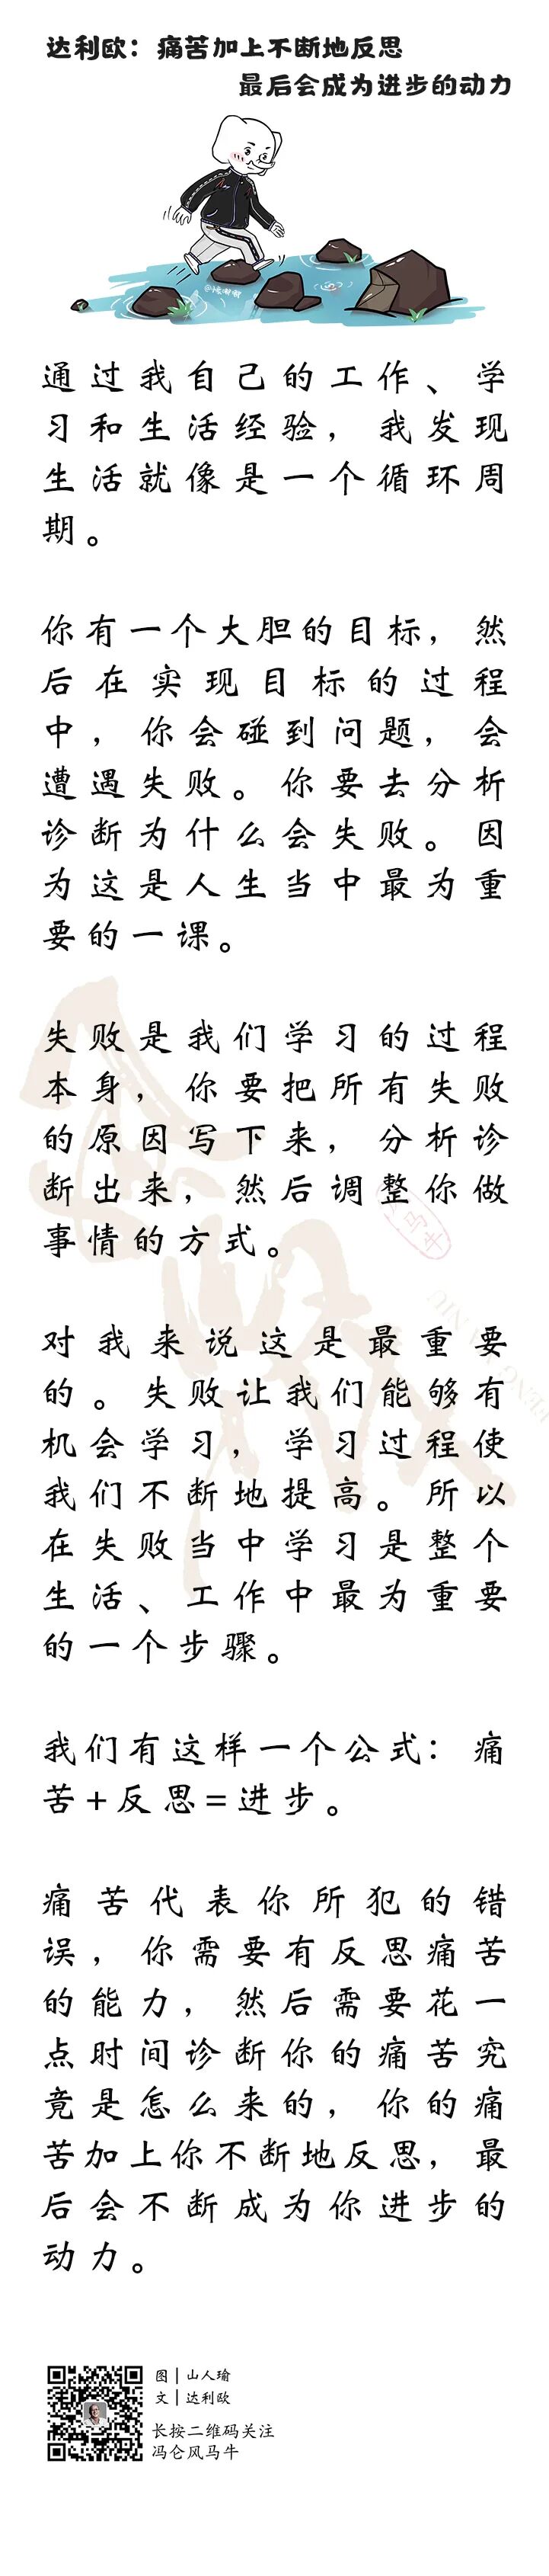 达利欧：痛苦加上不断地反思
最后会成为进步的动力
通过我自己的工作、学
习和生活经验，我发现
生活就像是一个循环周
期。
你有一个大胆的目标，然
后在实现目标的过程
中，你会碰到问题，会
遭遇失败。你要去分析
诊断为什么会失败。因
为这是人生当中最为重
要的一课。
失败是我们学习的过程
本身，你要把所有失败
的原因写下来，分析诊
断出来，然后调整你做
事情的方式。
对我来说这是最重要
的。失败让我们能够有
机会学习，学习过程使
我们不断地提高。所以
在失败当中学习是整个
生活、工作中最为重要
的一个步骤。
我们有这样一个公式：痛
苦+反思=进步。
痛苦代表你所犯的错
误，你需要有反思痛苦
的能力，然后需要花一
点时间诊断你的痛苦究
竟是怎么来的，你的痛
苦加上你不断地反思，最
后会不断成为你进步的
动力。
图｜山人瑜
文｜达利欧
长按二维码关注
冯仑风马牛